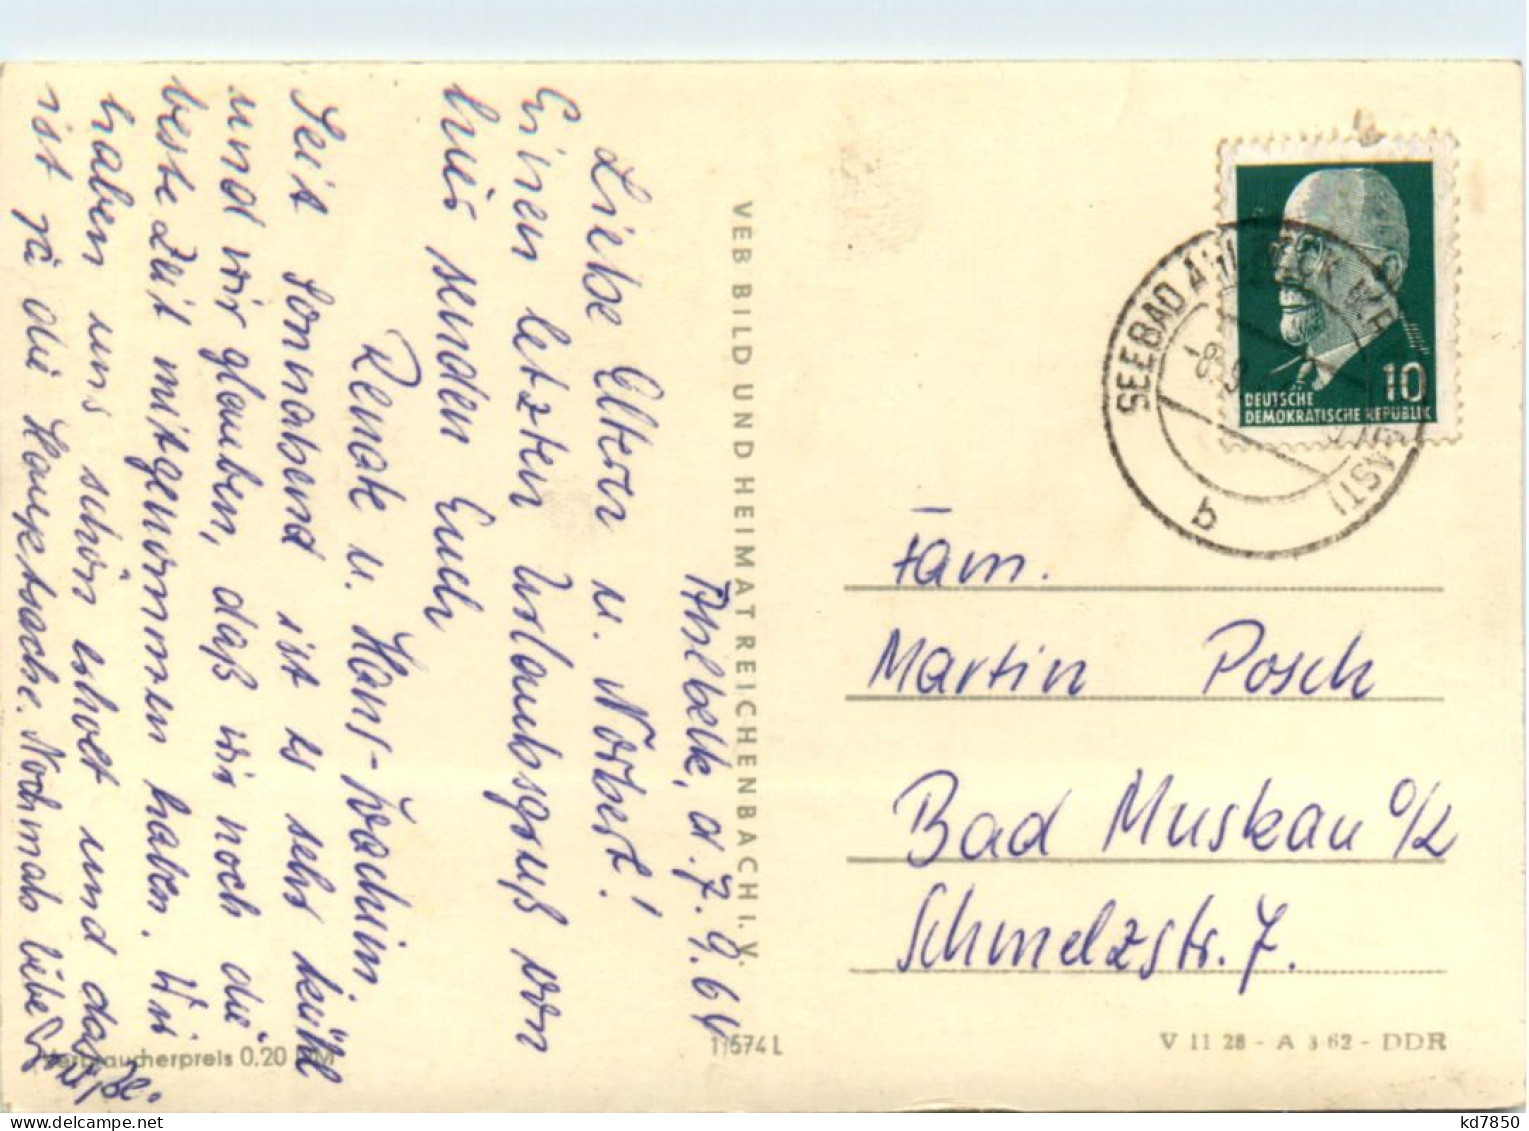 Ahlbeck, d. 7.9.64
Liebe Eltern u. Norbert!
Einen letzten Urlaubsgruß von
hier senden Euch
Renate u. Hans-Joachim
Seit Sonnabend ist es sehr kühl
und wir glauben, daß wir noch die
beste Zeit mitgenommen haben. Wir
haben uns schön erholt und das
ist ja die Hauptsache. Nochmals liebe
Grüße.
VEB BILD UND HEIMAT REICHENBACH I. V.
Verbraucherpreis 0.20 DM
1/674 L
SEEBAD AHLBECK
b
DEUTSCHE
DEMOKRATISCHE REPUBLIK
10
Fam.
Martin Posch
Bad Muskau O/L
Schmelzstr. 7.
V 11 28 - A 3 62 - DDR
kd7850